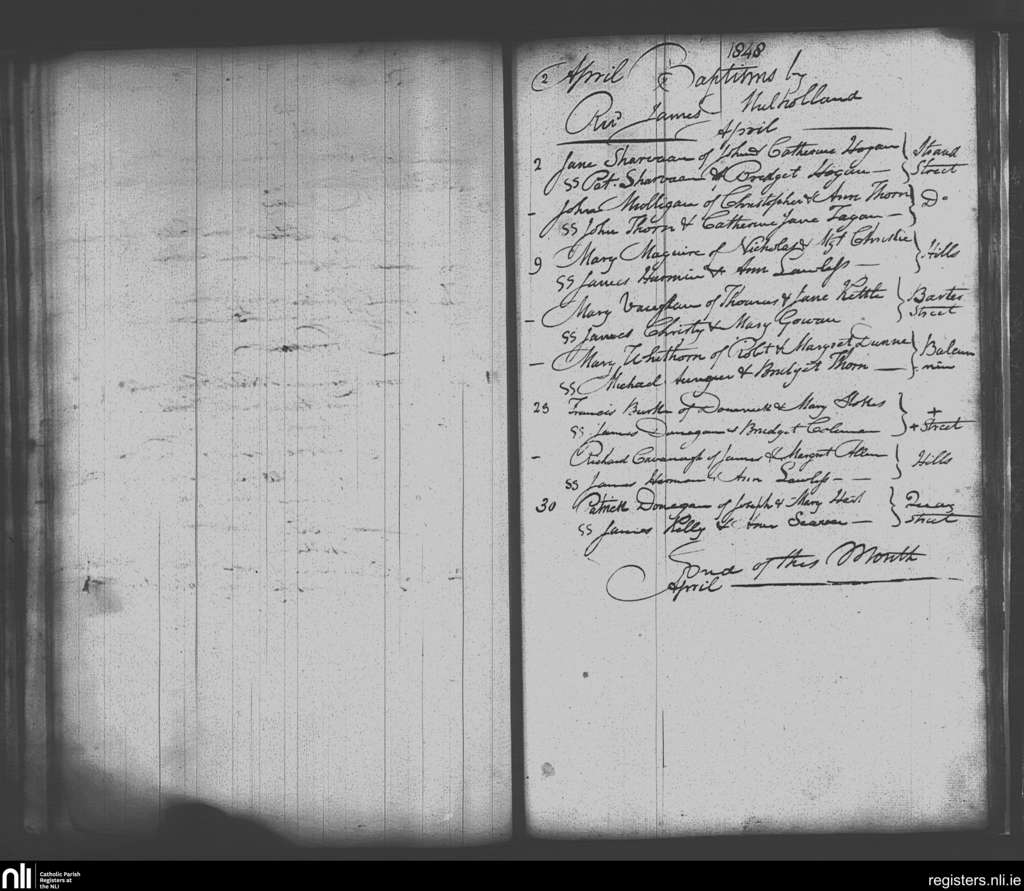 1848
2 April Baptisms by
Revd James Mulholland
April
2 Jane Sharvaan of John & Catherine Hogan } Strand
SS Pat. Sharvaan & Bridget Hogan — Street
- John Mulligan of Christopher & Ann Thorn } Do
SS John Thorn & Catherine Jane Fagan —
9 Mary Maguire of Nicholas & Mgt Christie } Hills
SS James Harmin & Ann Lawless —
- Mary Vaughan of Thomas & Jane Kettle } Baster
SS James Christy & Mary Gowan Street
- Mary Whithorn of Robt & Margret Dunne } Balcun
SS Michael & Bridget Thorn — nin
23 Francis Burke of Dominick & Mary Stokes } +
SS James Donegan & Bridget Coleman + Street
- Richard Cavanagh of James & Margret Allen } Hills
SS James Harman & Ann Lawless - -
30 Patrick Donegan of Joseph & Mary } Quay
SS James Kelly & Ann — Street
End of this Month
April
nli
Catholic Parish
Registers at
the NLI
registers.nli.ie